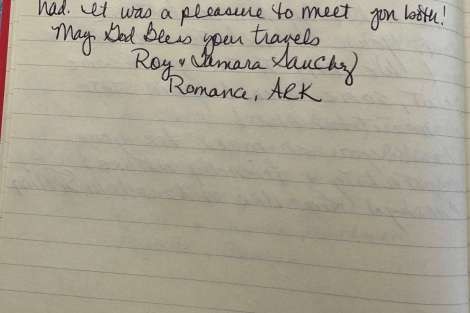 had. It was a pleasure to meet you both!
May God Bless your travels
Roy & Tamara Sanchez
Romance, ARK